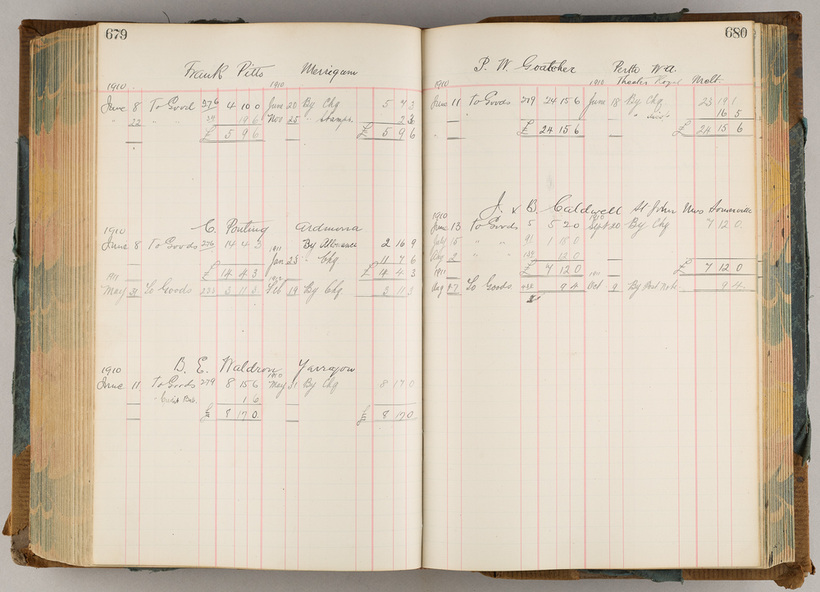 679
Frank Pitts Merrigum
1910 1910
June 8 To Good 276 4 10 0 June 20 By Chq 5 7 3
" 22 " " 19 6 Nov 25 " Stamps 2 3
£ 5 9 6 £ 5 9 6
C. Ponting Ardmona
1910
June 8 To Goods 276 14 4 3 By Allowance 2 16 9
1911 Jan 23 " Chq 11 7 6
£ 14 4 3 £ 14 4 3
1911
May 31 To Goods 3 11 3 19 By Chq 3 11 3
B. E. Waldron Yarragon
1910 1910
June 11 To Goods 279 8 15 6 May 31 By Chq 8 17 0
1 6
£ 8 17 0 £ 8 17 0
680
P. W. Goatcher Perth W.A.
1910 1910 Theatre Royal Melb.
June 11 To Goods 279 24 15 6 June 18 By Chq 23 19 1
" 16 5
£ 24 15 6 £ 24 15 6
J. & B. Caldwell St John Mrs Somerville
1910 1910
June 13 To Goods 5 5 2 0 Sept 20 By Chq 7 12 0
July 15 " " 91 1 18 0
2 " " 12 0
£ 7 12 0 £ 7 12 0
1911
Aug 17 To Goods 9 4 Oct 9 By Post Note 9 4